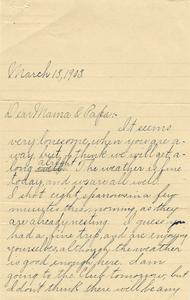 March 13, 1933
Dear Mama & Papa:-
It seems
very lonesome, when you are a-
way, but I think we will get a-
long alright. The weather is fine
today, and us are all well.
I shot eight sparrows in a few
minutes this morning, as they
are already nesting. I guess you
had a fine trip, and are enjoying
yourselves, although the weather
is good enough here. I am
going to the club tomorrow, but
I don't think there will be any